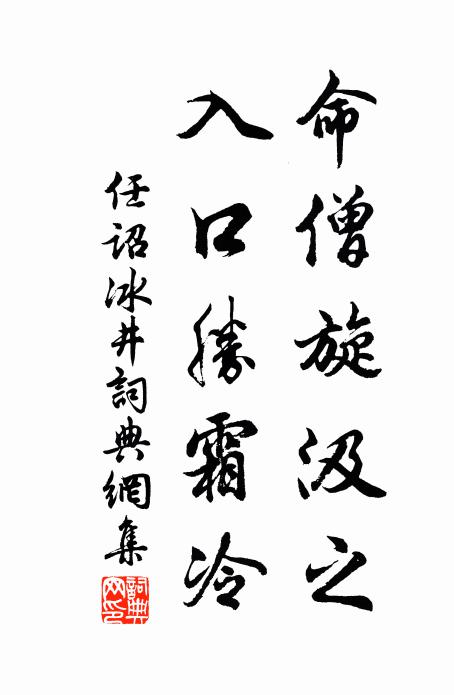 命僧旋汲之
入口勝霜冷
任詔冰井詞典網集
詞典
网印